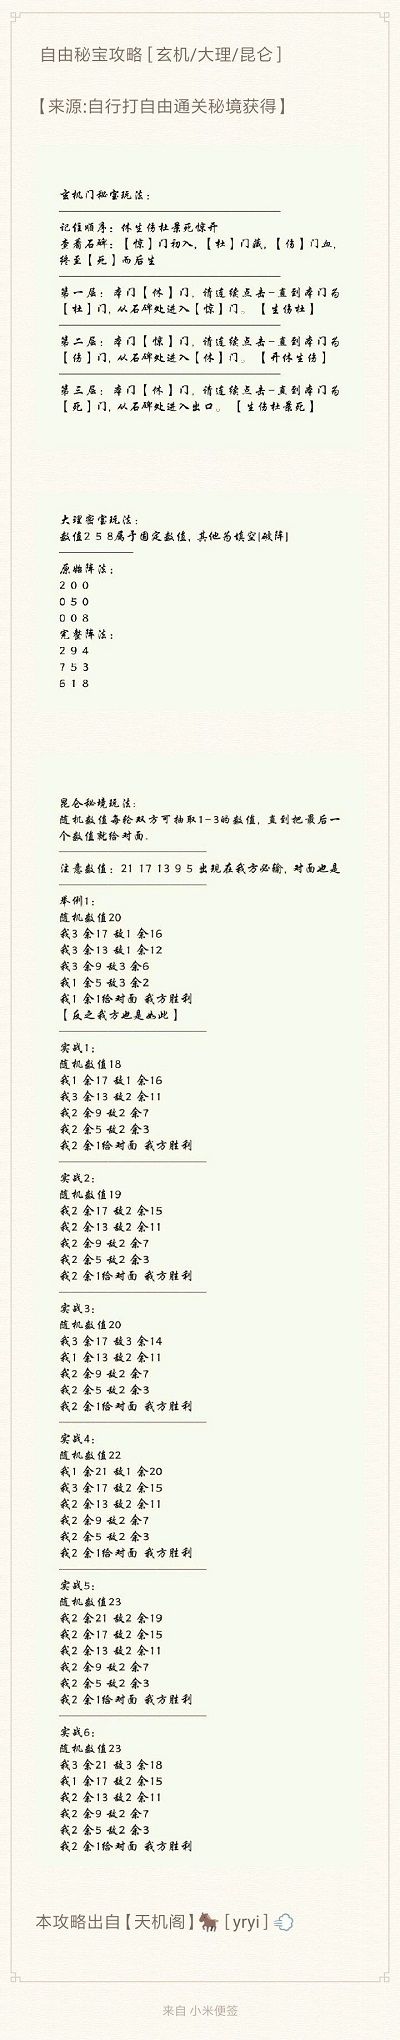 自由秘宝攻略[玄机/大理/昆仑]
【来源:自行打自由通关秘境获得】
玄机门秘宝玩法：
记住顺序：休生伤杜景死惊开
查看石碑：【惊】门初入,【杜】门藏,【伤】门血,
终至【死】而后生
第一层：本门【休】门，请连续点击-直到本门为
【杜】门,从石碑处进入【惊】门。【生伤杜】
第二层：本门【惊】门，请连续点击-直到本门为
【伤】门,从石碑处进入【休】门。【开休生伤】
第三层：本门【休】门，请连续点击-直到本门为
【死】门,从石碑处进入出口。【生伤杜景死】
大理密宝玩法：
数值2 5 8属于固定数值，其他为填空|破阵|
原始阵法：
2 0 0
0 5 0
0 0 8
完整阵法：
2 9 4
7 5 3
6 1 8
昆仑秘境玩法：
随机数值每轮双方可抽取1-3的数值，直到把最后一
个数值就给对面.
注意数值：21 17 13 9 5 出现在我方必输，对面也是
举例1：
随机数值20
我3 余17 敌1 余16
我3 余13 敌1 余12
我3 余9 敌3 余6
我1 余5 敌3 余2
我1 余1给对面 我方胜利
【反之我方也是如此】
实战1：
随机数值18
我1 余17 敌1 余16
我3 余13 敌2 余11
我2 余9 敌2 余7
我2 余5 敌2 余3
我2 余1给对面 我方胜利
实战2：
随机数值19
我2 余17 敌2 余15
我2 余13 敌2 余11
我2 余9 敌2 余7
我2 余5 敌2 余3
我2 余1给对面 我方胜利
实战3：
随机数值20
我3 余17 敌3 余14
我1 余13 敌2 余11
我2 余9 敌2 余7
我2 余5 敌2 余3
我2 余1给对面 我方胜利
实战4：
随机数值22
我1 余21 敌1 余20
我3 余17 敌2 余15
我2 余13 敌2 余11
我2 余9 敌2 余7
我2 余5 敌2 余3
我2 余1给对面 我方胜利
实战5：
随机数值23
我2 余21 敌2 余19
我2 余17 敌2 余15
我2 余13 敌2 余11
我2 余9 敌2 余7
我2 余5 敌2 余3
我2 余1给对面 我方胜利
实战6：
随机数值23
我3 余21 敌3 余18
我1 余17 敌2 余15
我2 余13 敌2 余11
我2 余9 敌2 余7
我2 余5 敌2 余3
我2 余1给对面 我方胜利
本攻略出自【天机阁】🐂[yryi]💨
来自 小米便签